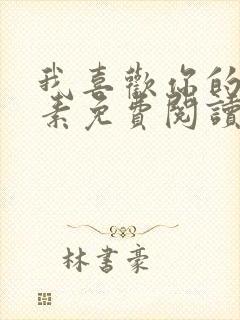 我喜歡你的
素免費閱讀
林書豪